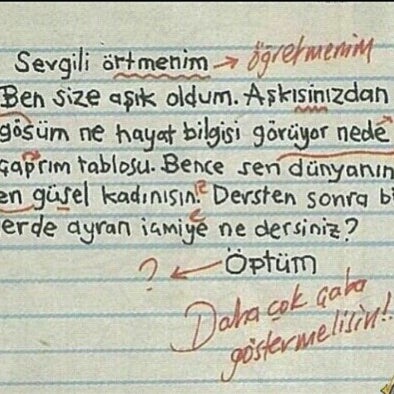 Sevgili örtmenim → öğretmenim
Ben size aşık oldum. Aşkısinızdan
gösüm ne hayat bilgisi görüyor nede
çaprım tablosu. Bence sen dünyanın
en güsel kadınısın. Dersten sonra bi
erde ayran içmiye ne dersiniz?
e
? ← Öptüm
Daha çok çaba
göstermelisin!